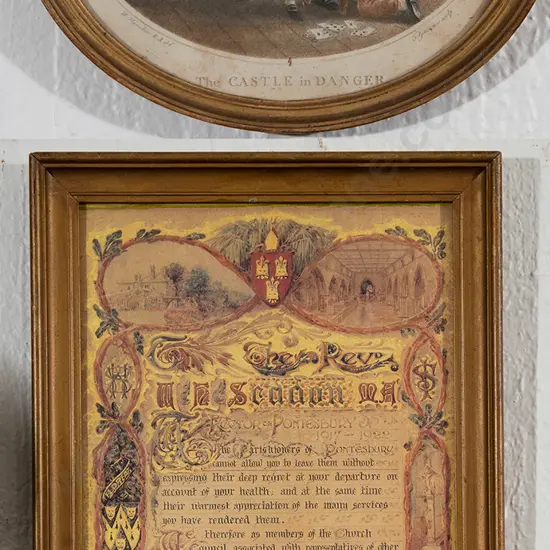 The CASTLE in DANGER
To The Revd
Seddon M.A
Rector of Pontesbury
1917-1922
We the Parishioners of Pontesbury
cannot allow you to leave them without
expressing their deep regret at your departure on
account of your health, and at the same time
their warmest appreciation of the many services
you have rendered them.
We therefore as members of the Church
Council associated with representatives of other